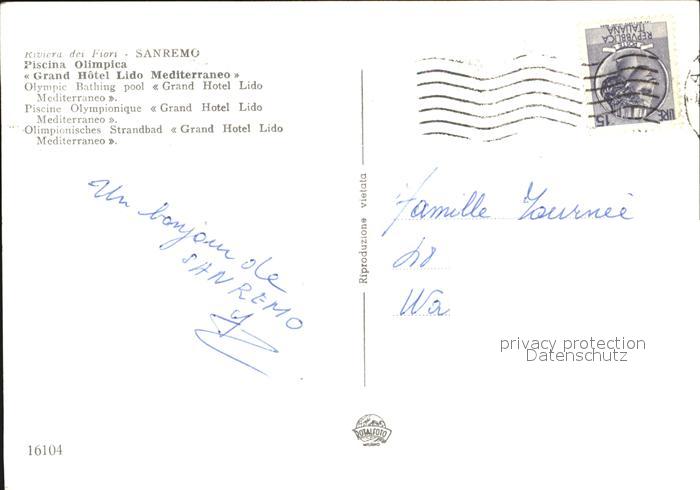 Riviera dei Fiori - SANREMO
Piscina Olimpica
« Grand Hôtel Lido Mediterraneo »
Olympic Bathing pool « Grand Hotel Lido
Mediterraneo ».
Piscine Olympionique « Grand Hotel Lido
Mediterraneo ».
Olimpionisches Strandbad « Grand Hotel Lido
Mediterraneo ».
Un bonjour de
SANREMO
Riproduzione vietata
REPVBBLICA
ITALIANA
LIRE 15
Famille Tournée
48
privacy protection
Datenschutz
ROTALFOTO
MILANO
16104